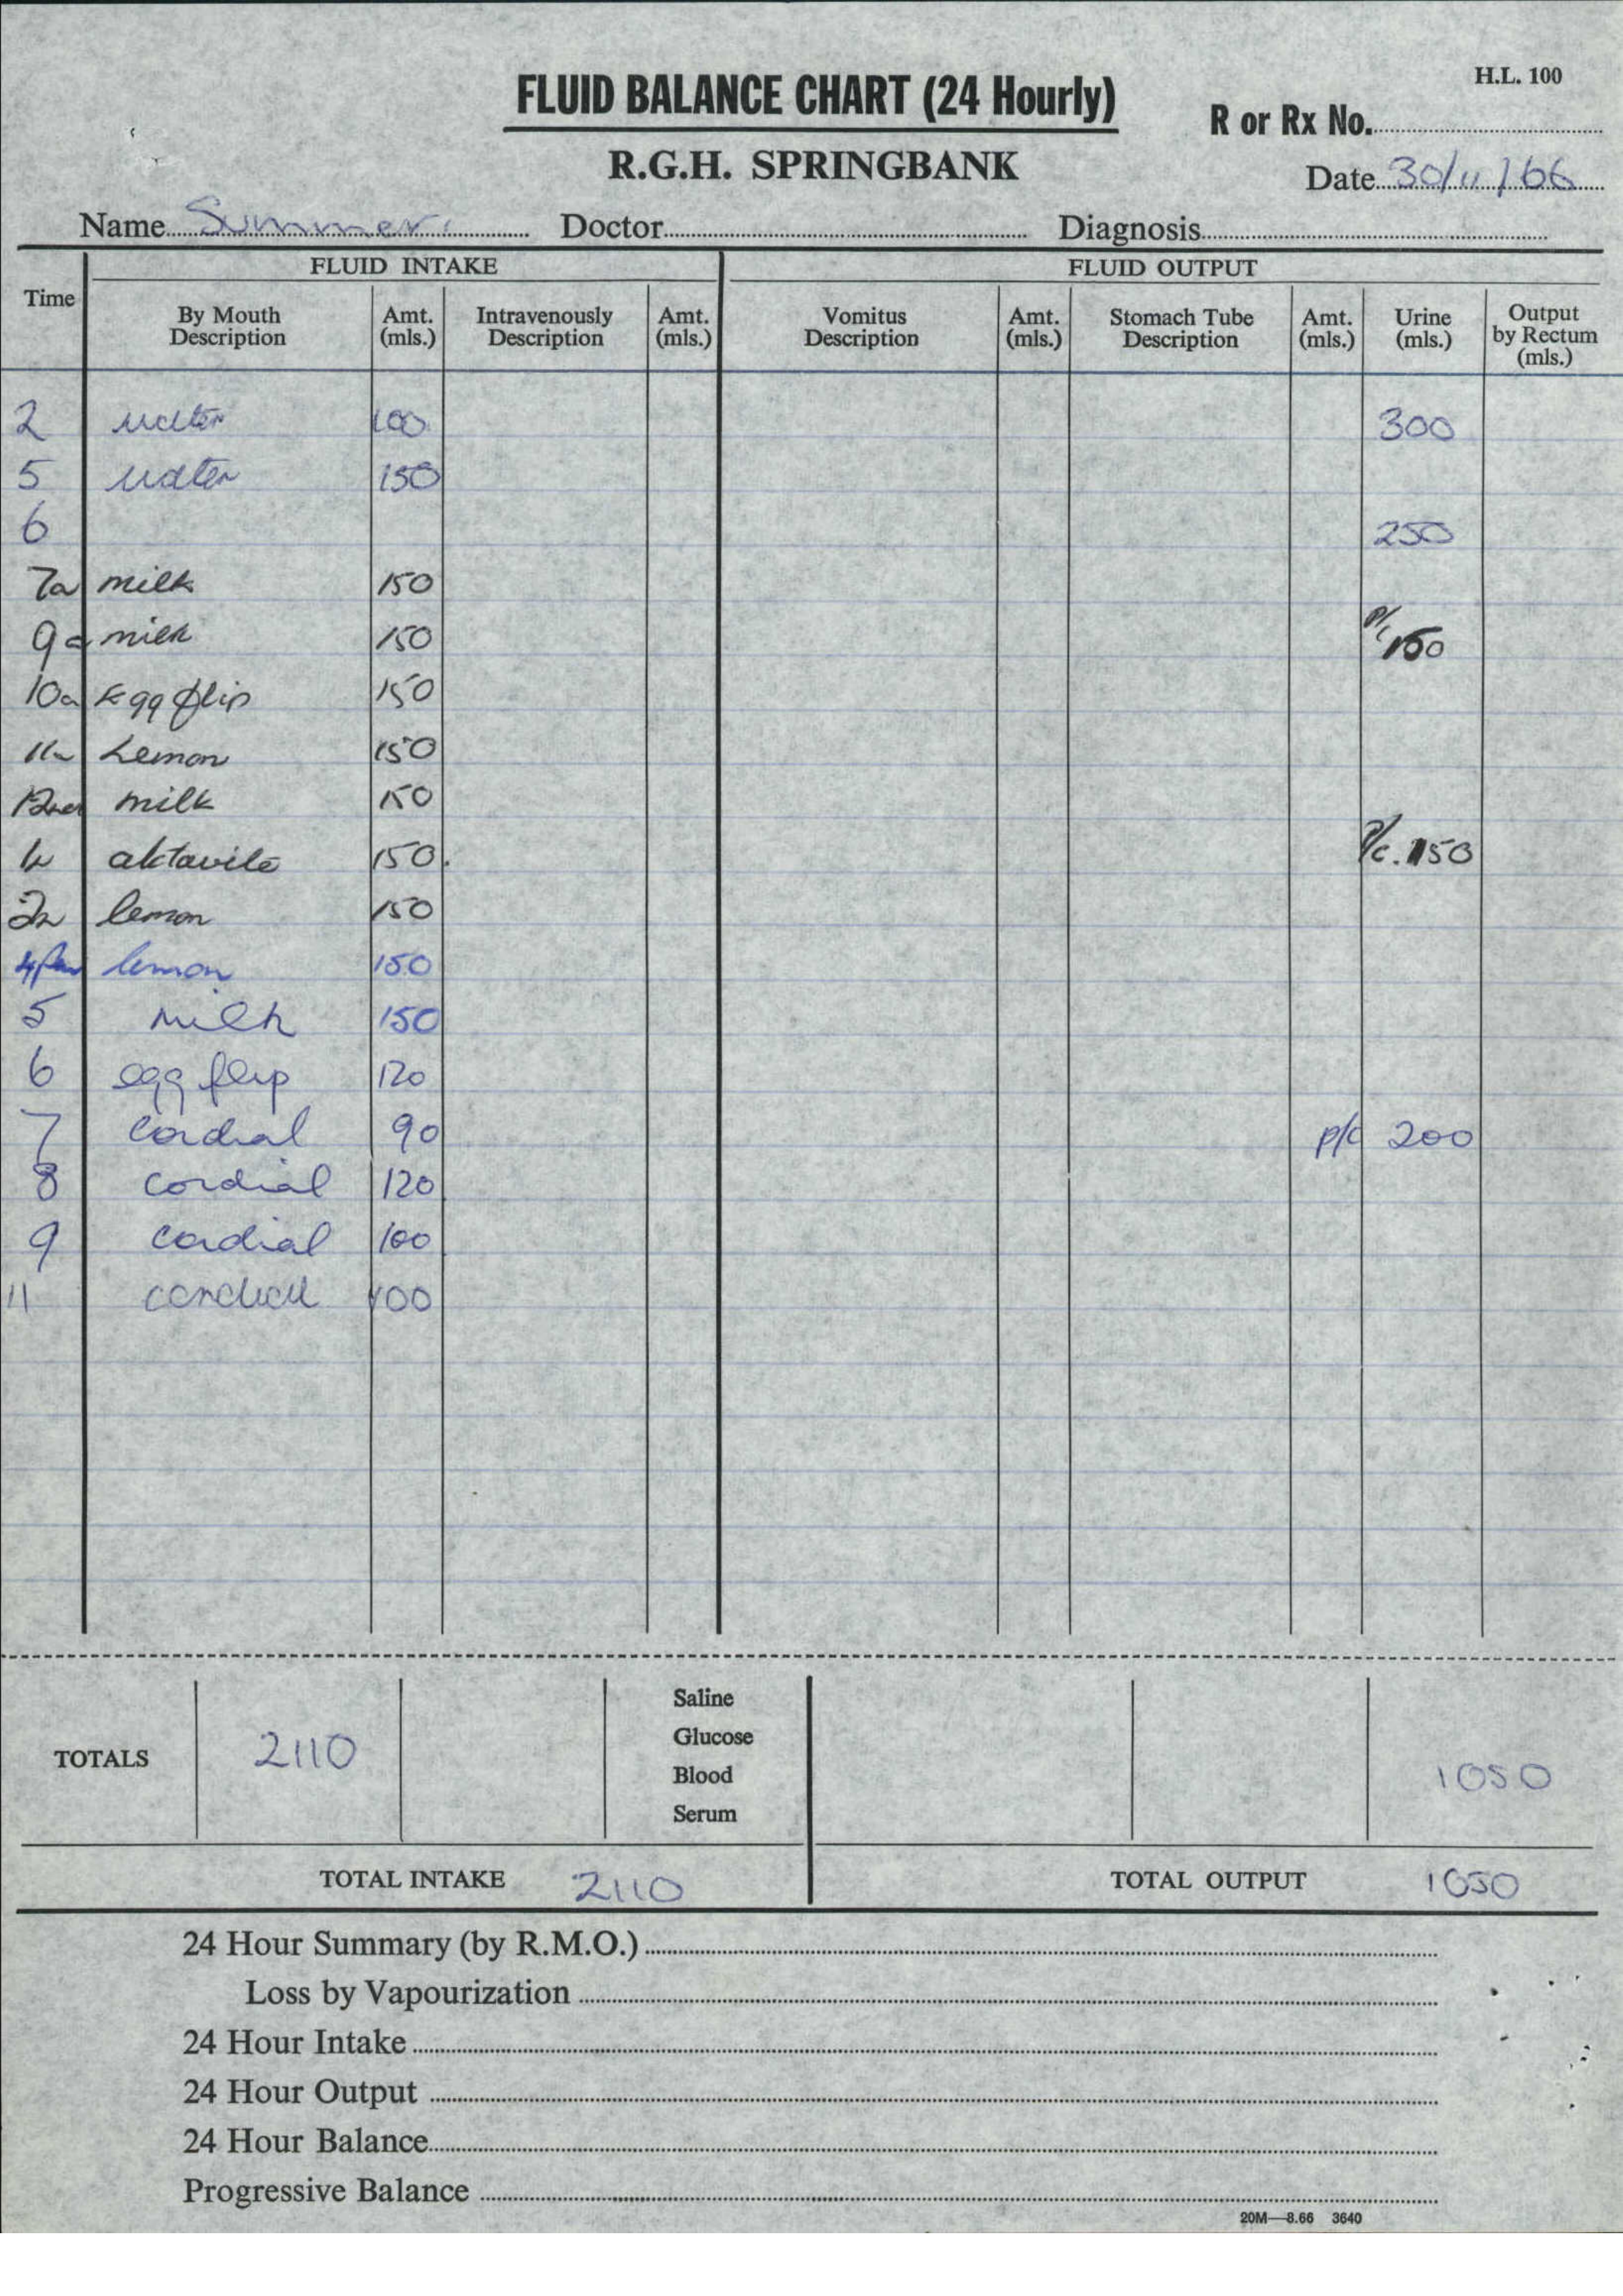 H.L. 100
FLUID BALANCE CHART (24 Hourly)
R or Rx No.
R.G.H. SPRINGBANK
Date 30/11/66
Name Summers Doctor Diagnosis
FLUID INTAKE FLUID OUTPUT
Time By Mouth Description Amt. (mls.) Intravenously Description Amt. (mls.) Vomitus Description Amt. (mls.) Stomach Tube Description Amt. (mls.) Urine (mls.) Output by Rectum (mls.)
2 water 100 300
5 water 150
6 250
7a milk 150
9a milk 150 P/c 150
10a Egg flip 150
11 Lemon 150
12 milk 150
1 aktavite 150. P/c. 150
2 lemon 150
4pm lemon 150
5 milk 150
6 egg flip 120
7 cordial 90 p/c 200
8 cordial 120
9 cordial 100
11 cordial 100
TOTALS 2110 Saline Glucose Blood Serum 1050
TOTAL INTAKE 2110 TOTAL OUTPUT 1050
24 Hour Summary (by R.M.O.)
Loss by Vapourization
24 Hour Intake
24 Hour Output
24 Hour Balance
Progressive Balance
20M—8.66 3640